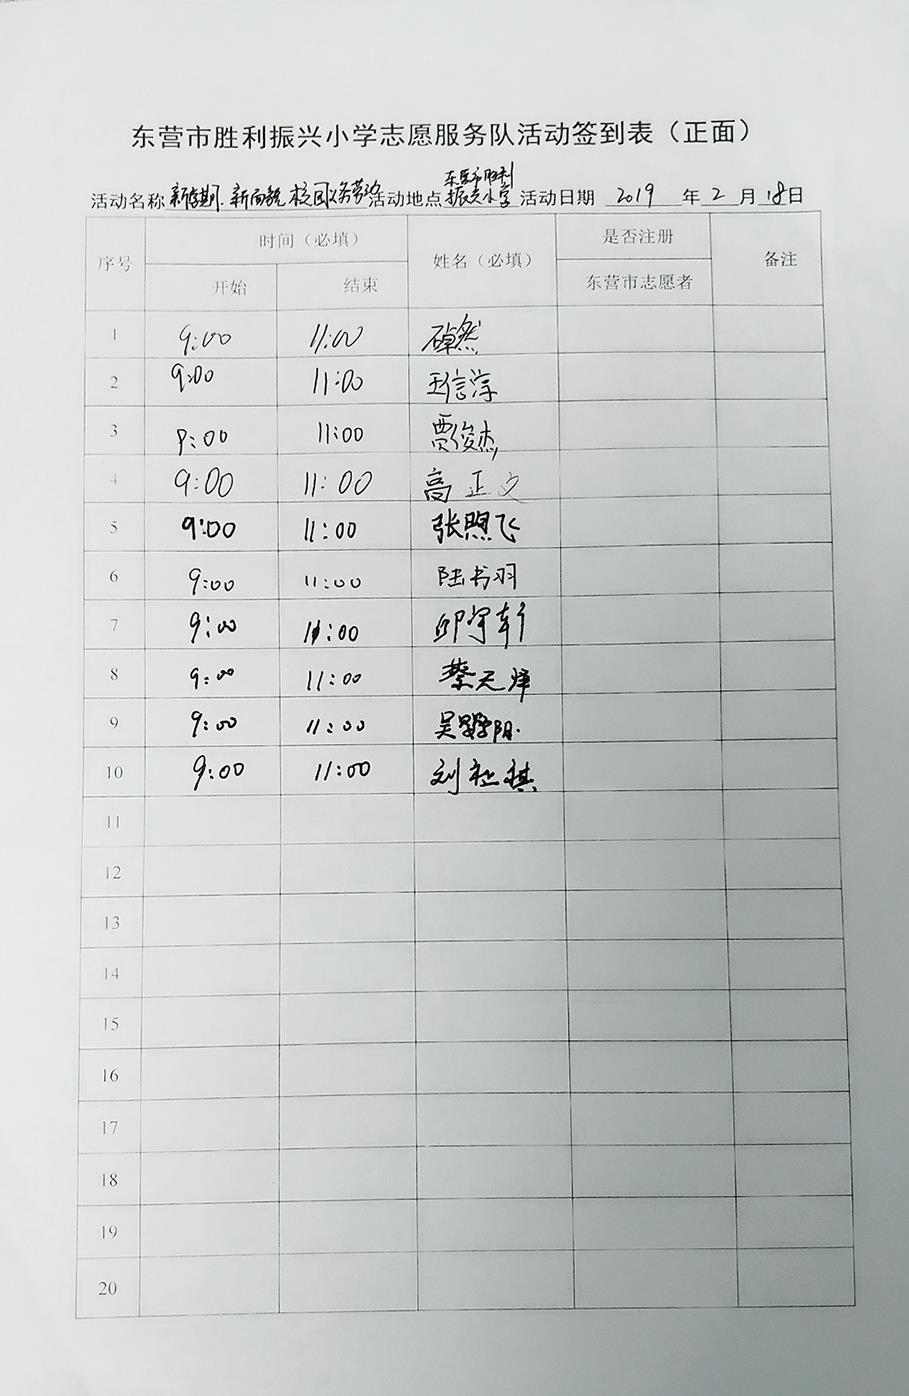 东营市胜利振兴小学志愿服务队活动签到表（正面）
活动名称 新学期.新面貌 校园义务劳动 活动地点 东营市胜利振兴小学 活动日期 2019 年 2 月 18 日
序号 时间（必填） 姓名（必填） 是否注册 备注
开始 结束 东营市志愿者
1 9:00 11:00
2 9:00 11:00 王信淳
3 9:00 11:00 贾俊杰
4 9:00 11:00 高正文
5 9:00 11:00 张煦飞
6 9:00 11:00 陆书羽
7 9:00 11:00 邱宇轩
8 9:00 11:00 蔡天烨
9 9:00 11:00 吴
10 9:00 11:00 刘 祺
11
12
13
14
15
16
17
18
19
20